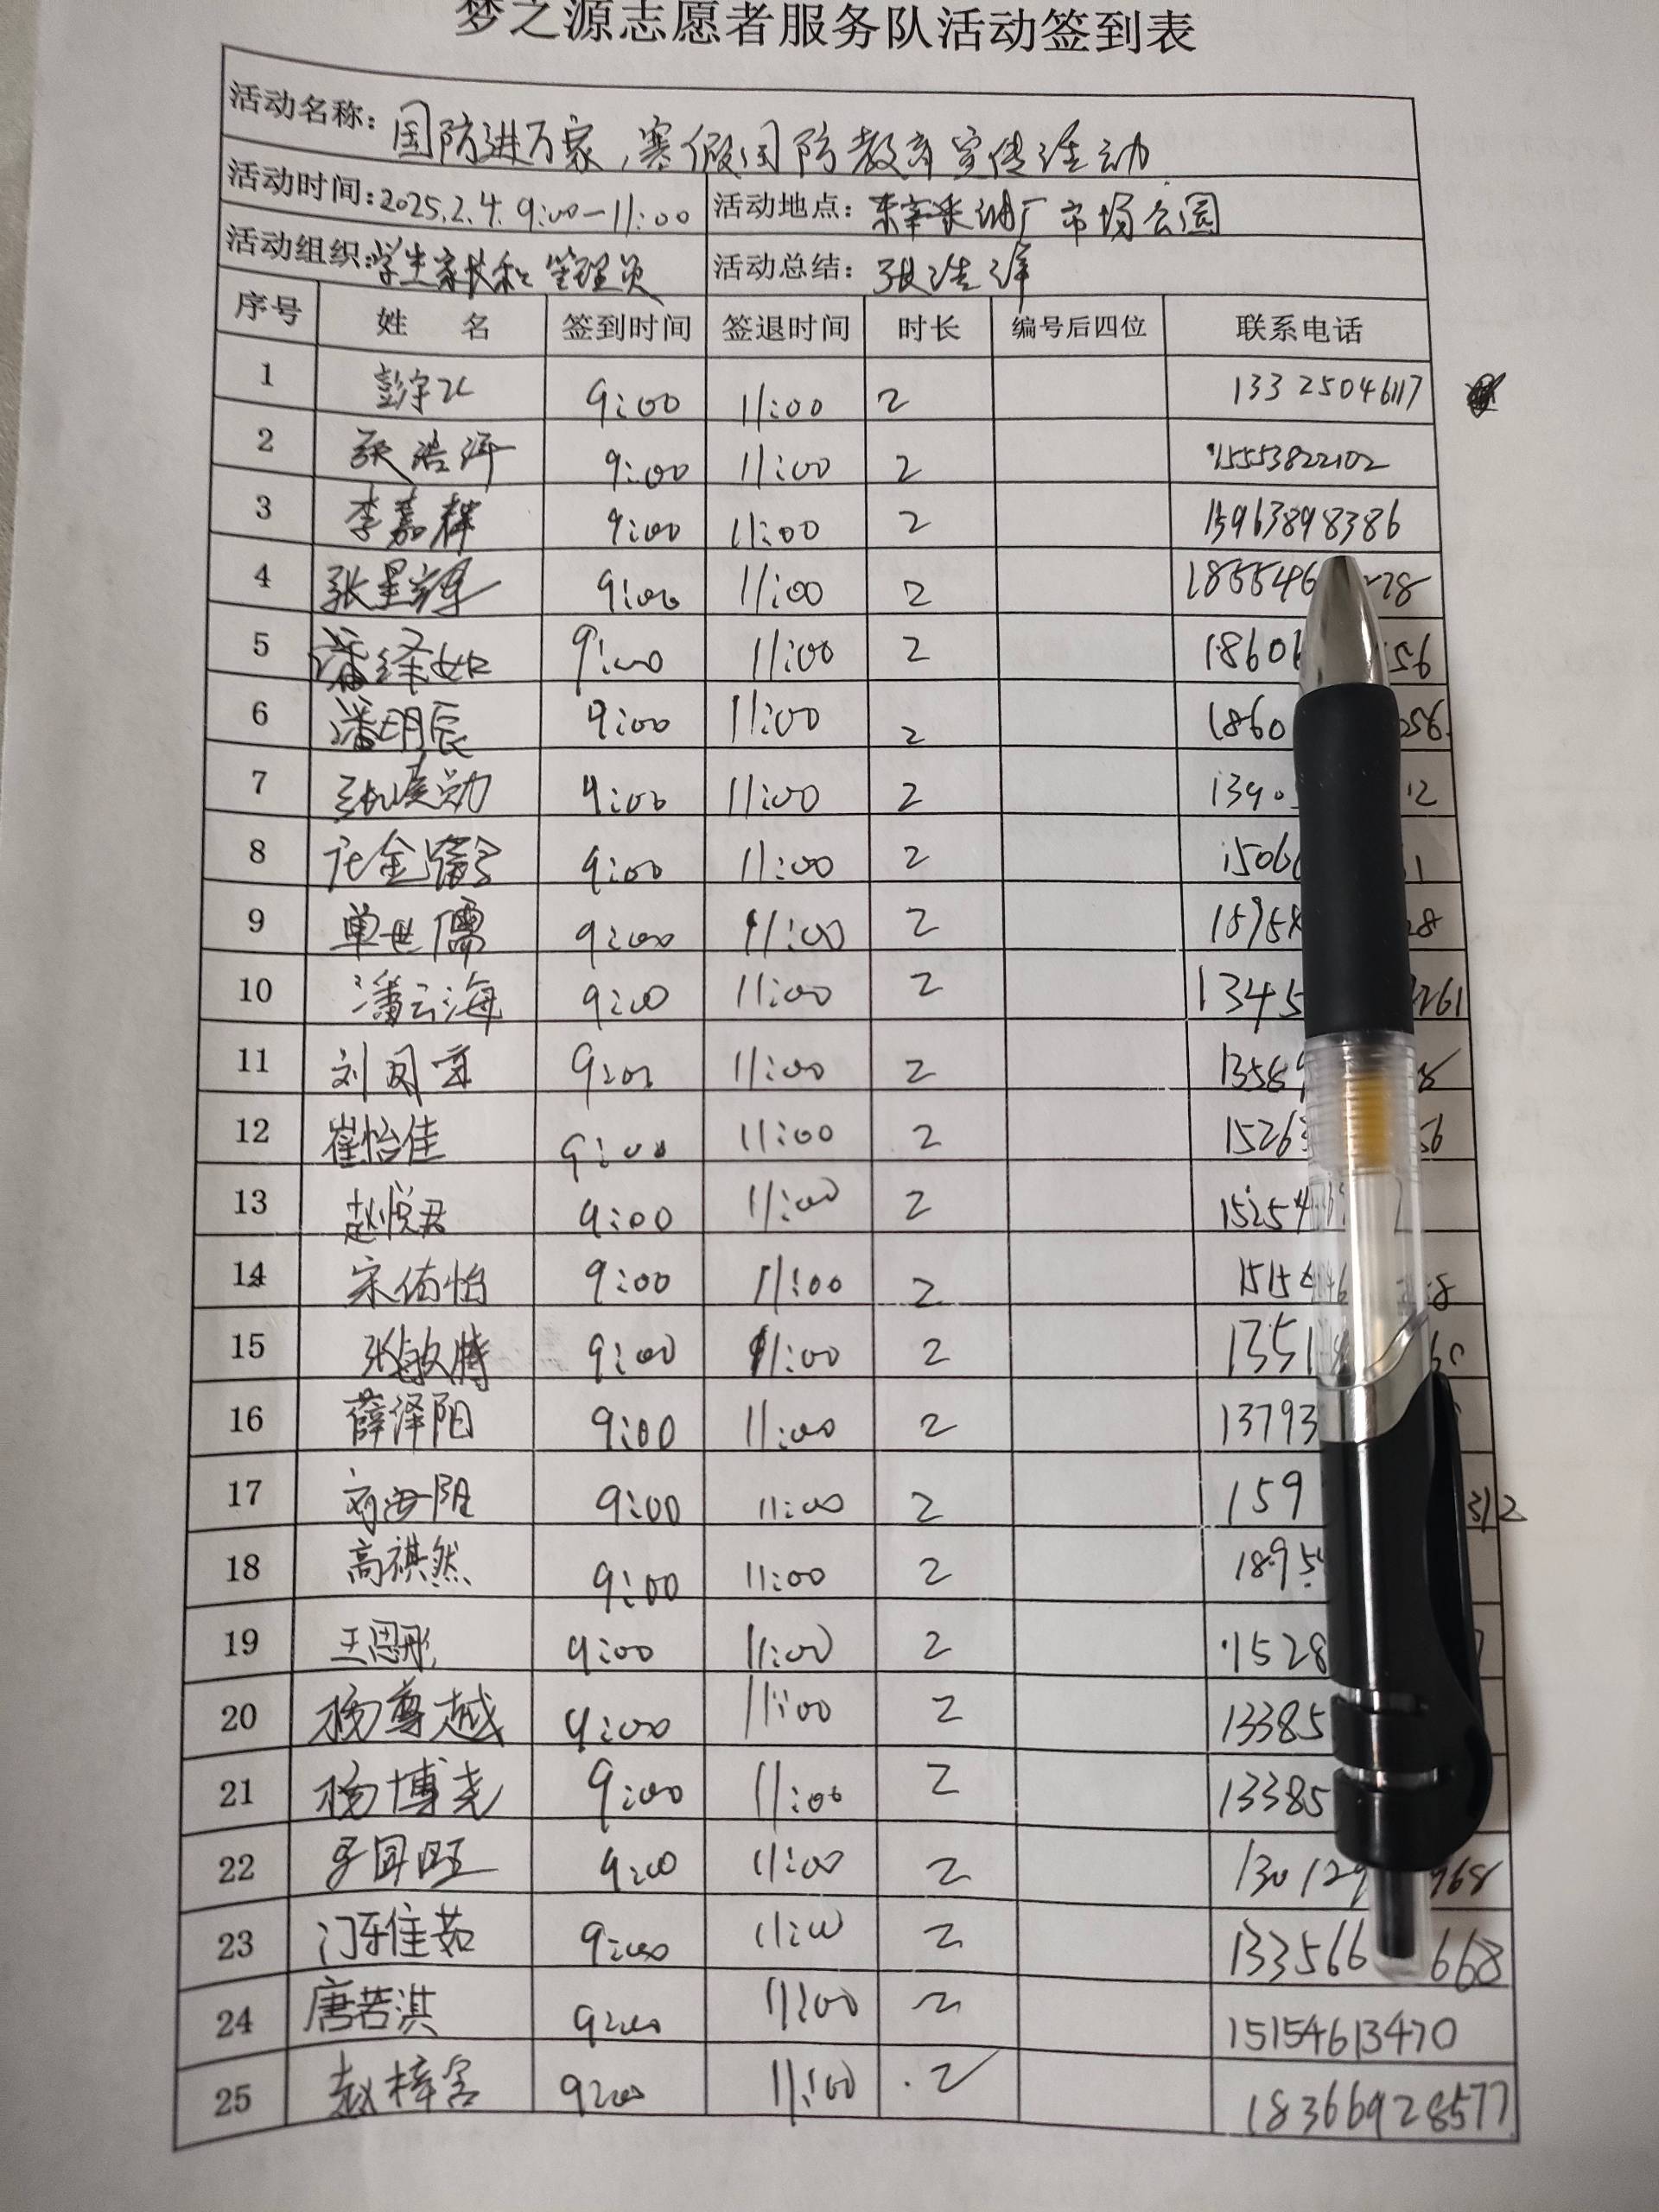 梦之源志愿者服务队活动签到表
活动名称: 国防进万家,寒假国防教育宣传活动
活动时间:2025.2.4. 9:00-11:00 活动地点: 东辛采油厂市场公园
活动组织:学生家长和管理员 活动总结: 张浩洋
序号 姓 名 签到时间 签退时间 时长 编号后四位 联系电话
1 彭宇 9:00 11:00 2 13325046117
2 张浩洋 9:00 11:00 2 15553822102
3 李嘉群 9:00 11:00 2 15963898386
4 张 9:00 11:00 2 1855546 28
5 潘绎如 9:00 11:00 2 18606 56
6 潘明辰 9:00 11:00 2 1860 056
7 9:00 11:00 2 1390 12
8 9:00 11:00 2 1506 1
9 单世儒 9:00 11:00 2 1595 28
10 潘云海 9:00 11:00 2 1345 261
11 刘 9:00 11:00 2 13569 8
12 崔怡佳 9:00 11:00 2 15263 56
13 赵悦君 9:00 11:00 2 15254 2
14 宋佑怡 9:00 11:00 2 15154 8
15 张敏博 9:00 11:00 2 1351 60
16 薛泽阳 9:00 11:00 2 13793
17 9:00 11:00 2 159 312
18 高祺然 9:00 11:00 2 1895
19 王思彤 9:00 11:00 2 1528
20 杨尊越 9:00 11:00 2 13385
21 杨博尧 9:00 11:00 2 13385
22 9:00 11:00 2 130129 968
23 门雅茹 9:00 11:00 2 133566 668
24 唐若淇 9:00 11:00 2 15154613470
25 赵梓含 9:00 11:00 2 18366928577